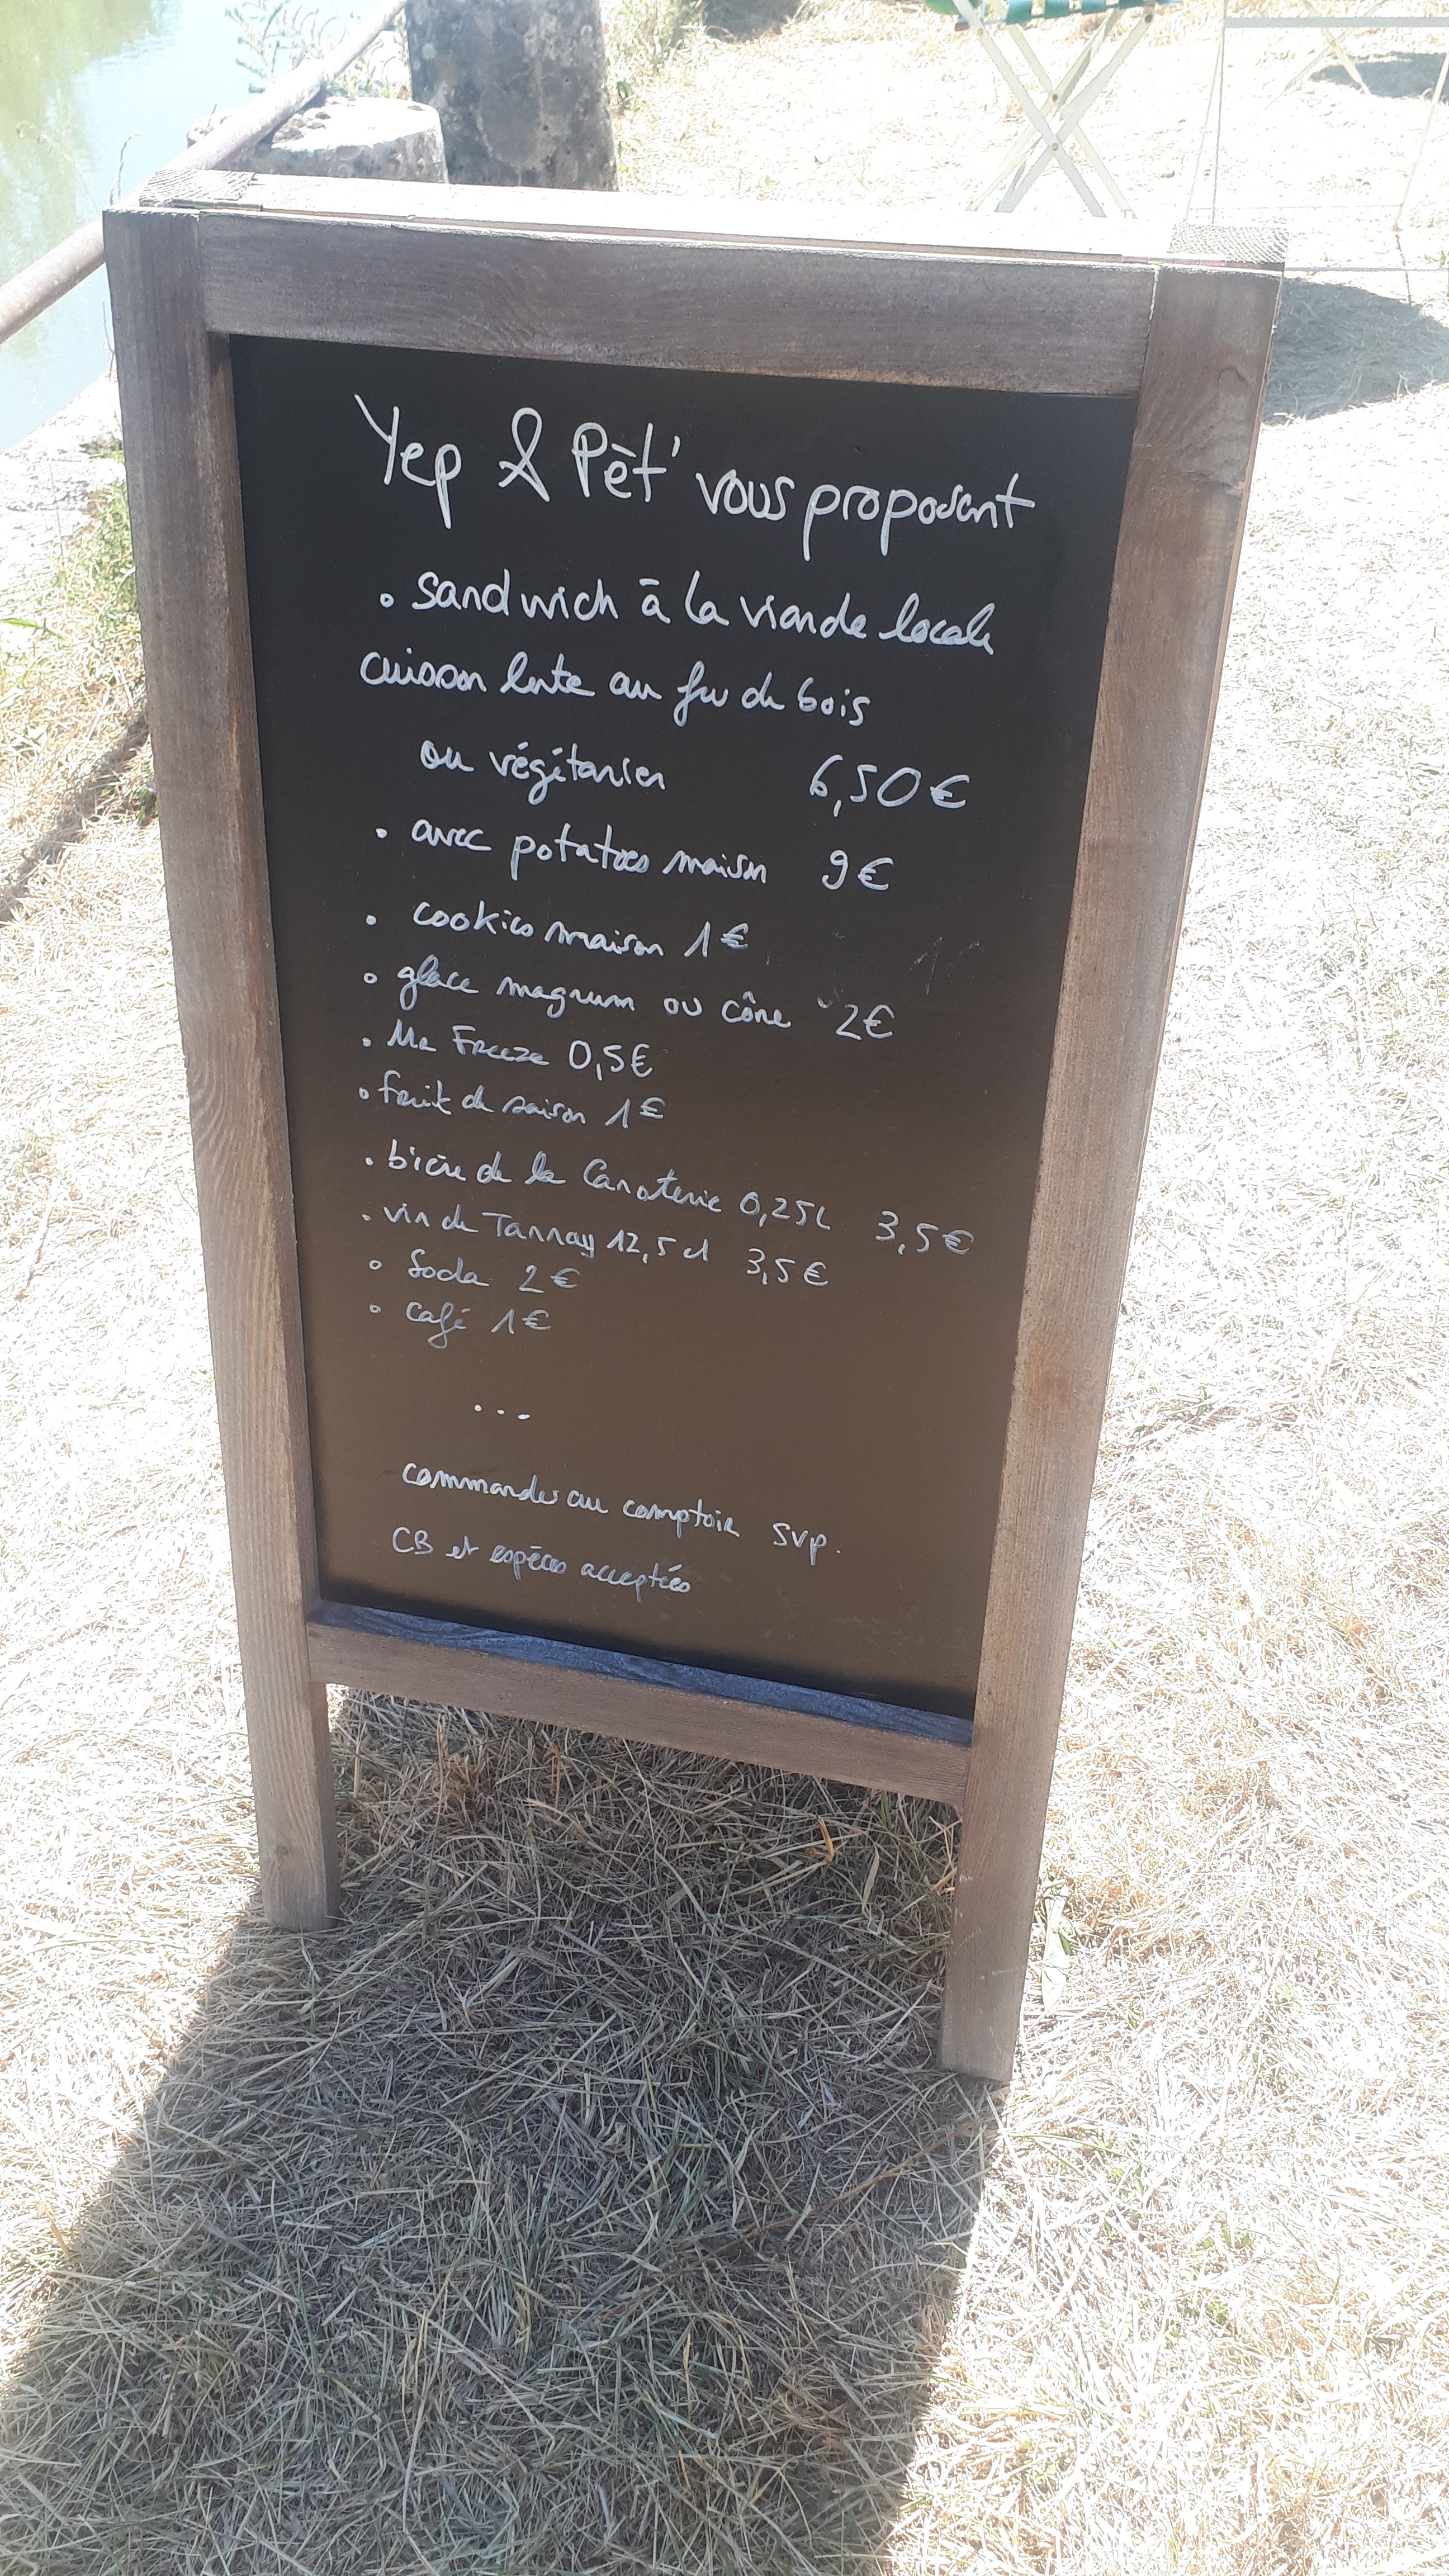 Yep & Pèt' vous proposent
• sandwich à la viande locale
cuisson lente au feu de bois
ou végétarien 6,50€
• avec potatoes maison 9€
• cookies maison 1€
• glace magnum ou cône 2€
• Mr Freeze 0,5€
• fruit de saison 1€
• bière de la Canoterie 0,25L 3,5€
• vin de Tannay 12,5 cl 3,5€
• Soda 2€
• café 1€
...
commandes au comptoir svp.
CB et espèces acceptées